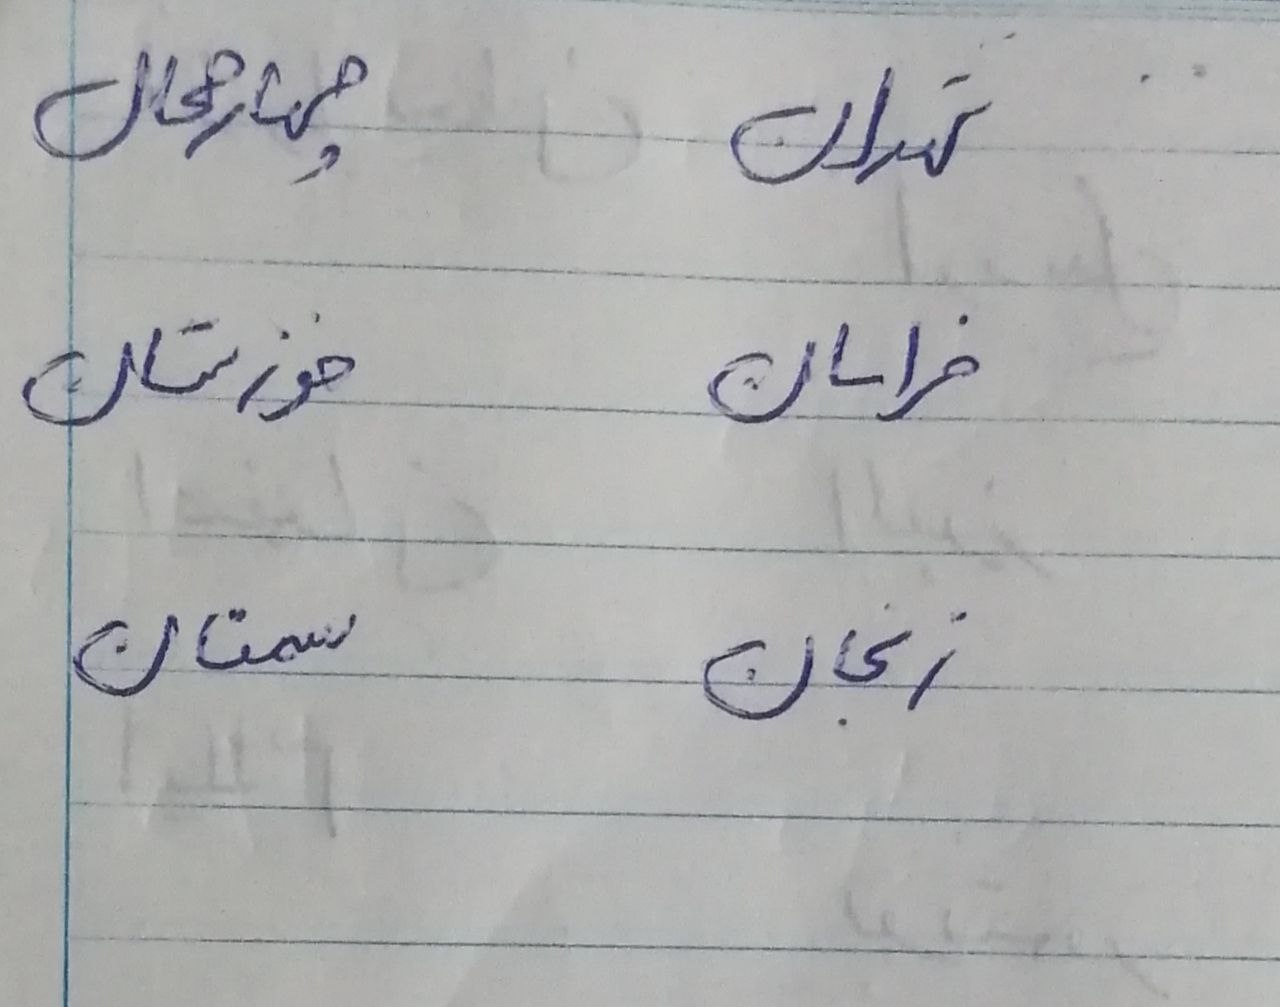 تهران چهارمحال
خراسان خوزستان
زنجان سمتان